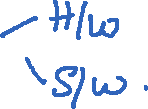 H/W
S/W.